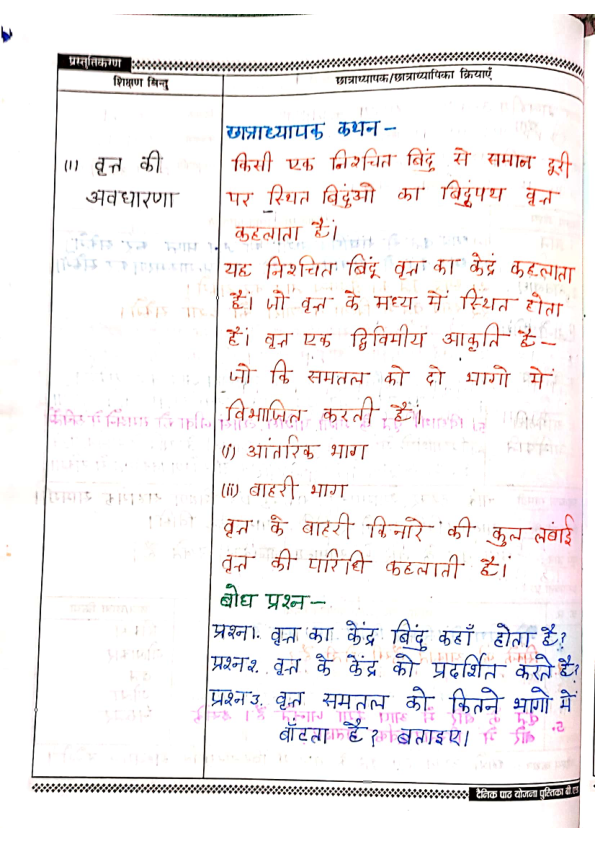 प्रस्तुतिकरण
शिक्षण बिन्दु
छात्राध्यापक/छात्राध्यापिका क्रियाएँ
(i) वृत्त की
अवधारणा
छात्राध्यापक कथन -
किसी एक निश्चित बिंदु से समान दूरी
पर स्थित बिंदुओ का बिंदुपथ वृत्त
कहलाता है।
यह निश्चित बिंदू वृत्त का केंद्र कहलाता
है। जो वृत्त के मध्य में स्थित होता
है। वृत्त एक द्विविमीय आकृति है -
जो कि समतल को दो भागो में
विभाजित करती है।
(i) आंतरिक भाग
(ii) बाहरी भाग
वृत्त के बाहरी किनारे की कुल लंबाई
वृत्त की परिधि कहलाती है।
बोध प्रश्न -
प्रश्न1. वृत्त का केंद्र बिंदु कहाँ होता है?
प्रश्न2. वृत्त के केंद्र को प्रदर्शित करते है?
प्रश्न3. वृत्त समतल को कितने भागो में
बाँटता है? बताइए।
दैनिक पाठ योजना पुस्तिका बी.एड